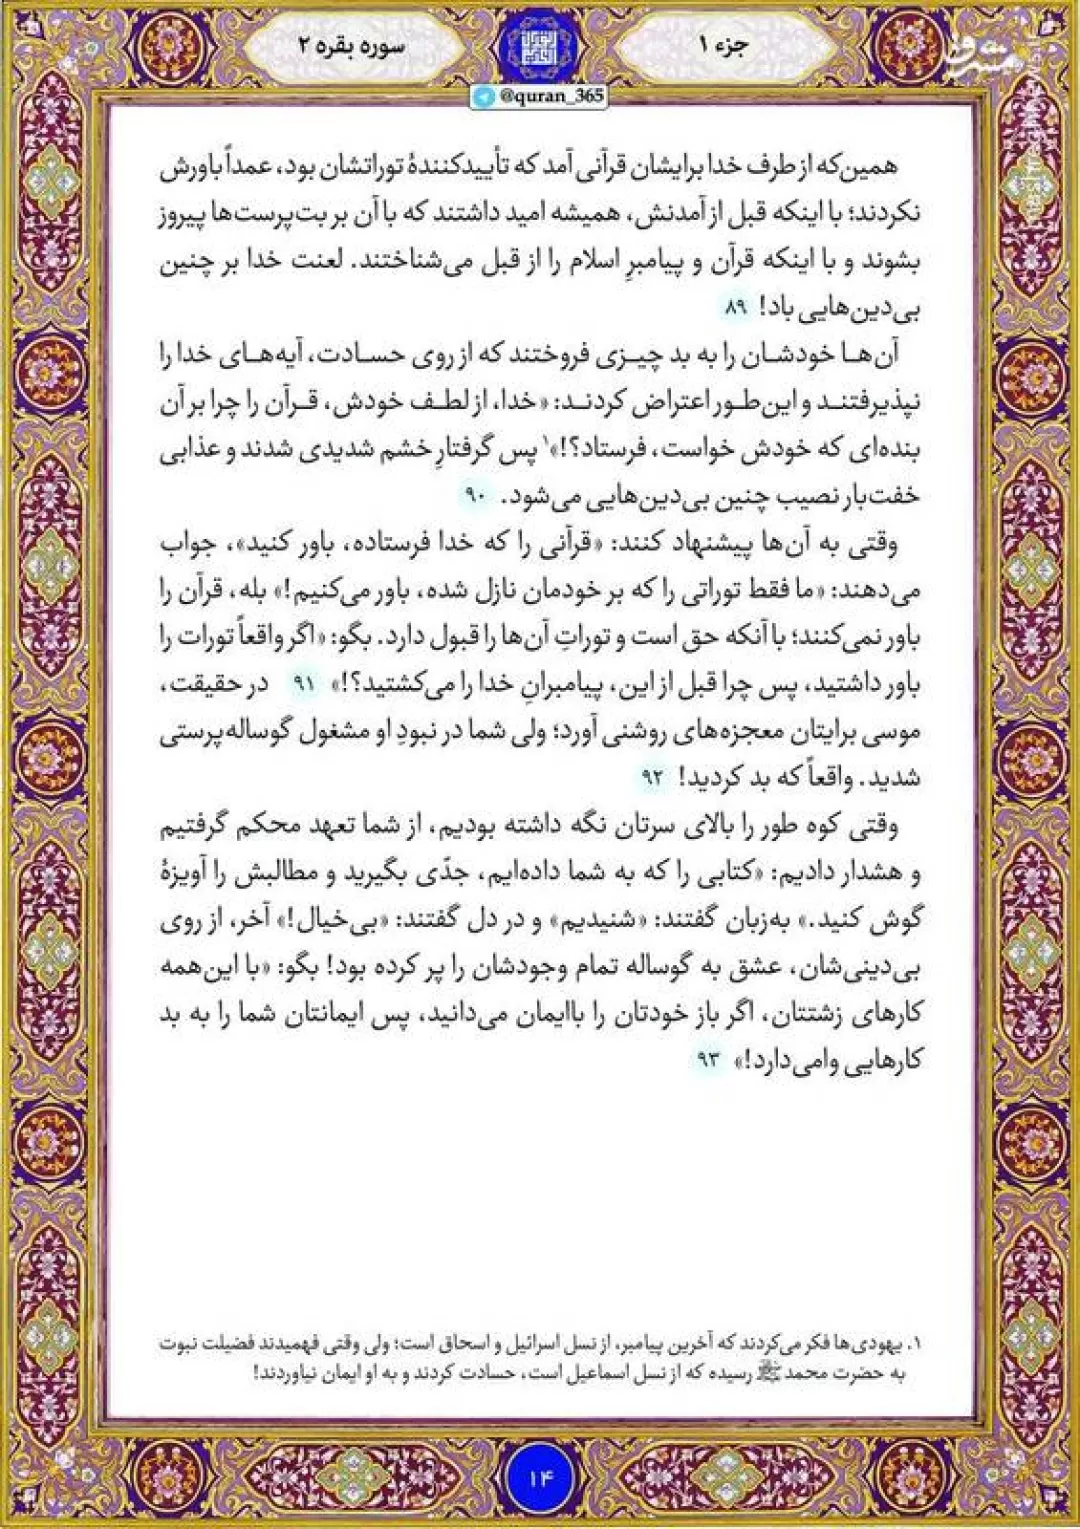 جزء ۱
سوره بقره ۲
@quran_365
مشرق
همین‌که از طرف خدا برایشان قرآنی آمد که تأییدکنندهٔ توراتشان بود، عمداً باورش
نکردند؛ با اینکه قبل از آمدنش، همیشه امید داشتند که با آن بر بت‌پرست‌ها پیروز
بشوند و با اینکه قرآن و پیامبرِ اسلام را از قبل می‌شناختند. لعنت خدا بر چنین
بی‌دین‌هایی باد! ۸۹
آن‌هـا خودشـان را به بد چیـزی فروختند که از روی حسـادت، آیه‌هـای خدا را
نپذیرفتنـد و این‌طـور اعتراض کردنـد: «خدا، از لطـف خودش، قـرآن را چرا بر آن
بنده‌ای که خودش خواست، فرستاد؟!»۱ پس گرفتارِ خشم شدیدی شدند و عذابی
خفت‌بار نصیب چنین بی‌دین‌هایی می‌شود. ۹۰
وقتی به آن‌ها پیشنهاد کنند: «قرآنی را که خدا فرستاده، باور کنید»، جواب
می‌دهند: «ما فقط توراتی را که بر خودمان نازل شده، باور می‌کنیم!» بله، قرآن را
باور نمی‌کنند؛ با آنکه حق است و توراتِ آن‌ها را قبول دارد. بگو: «اگر واقعاً تورات را
باور داشتید، پس چرا قبل از این، پیامبرانِ خدا را می‌کشتید؟!» ۹۱ در حقیقت،
موسی برایتان معجزه‌های روشنی آورد؛ ولی شما در نبودِ او مشغول گوساله‌پرستی
شدید. واقعاً که بد کردید! ۹۲
وقتی کوه طور را بالای سرتان نگه داشته بودیم، از شما تعهد محکم گرفتیم
و هشدار دادیم: «کتابی را که به شما داده‌ایم، جدّی بگیرید و مطالبش را آویزهٔ
گوش کنید.» به‌زبان گفتند: «شنیدیم» و در دل گفتند: «بی‌خیال!» آخر، از روی
بی‌دینی‌شان، عشق به گوساله تمام وجودشان را پر کرده بود! بگو: «با این‌همه
کارهای زشتتان، اگر باز خودتان را باایمان می‌دانید، پس ایمانتان شما را به بد
کارهایی وامی‌دارد!» ۹۳
۱. یهودی‌ها فکر می‌کردند که آخرین پیامبر، از نسل اسرائیل و اسحاق است؛ ولی وقتی فهمیدند فضیلت نبوت
به حضرت محمد ﷺ رسیده که از نسل اسماعیل است، حسادت کردند و به او ایمان نیاوردند!
۱۴